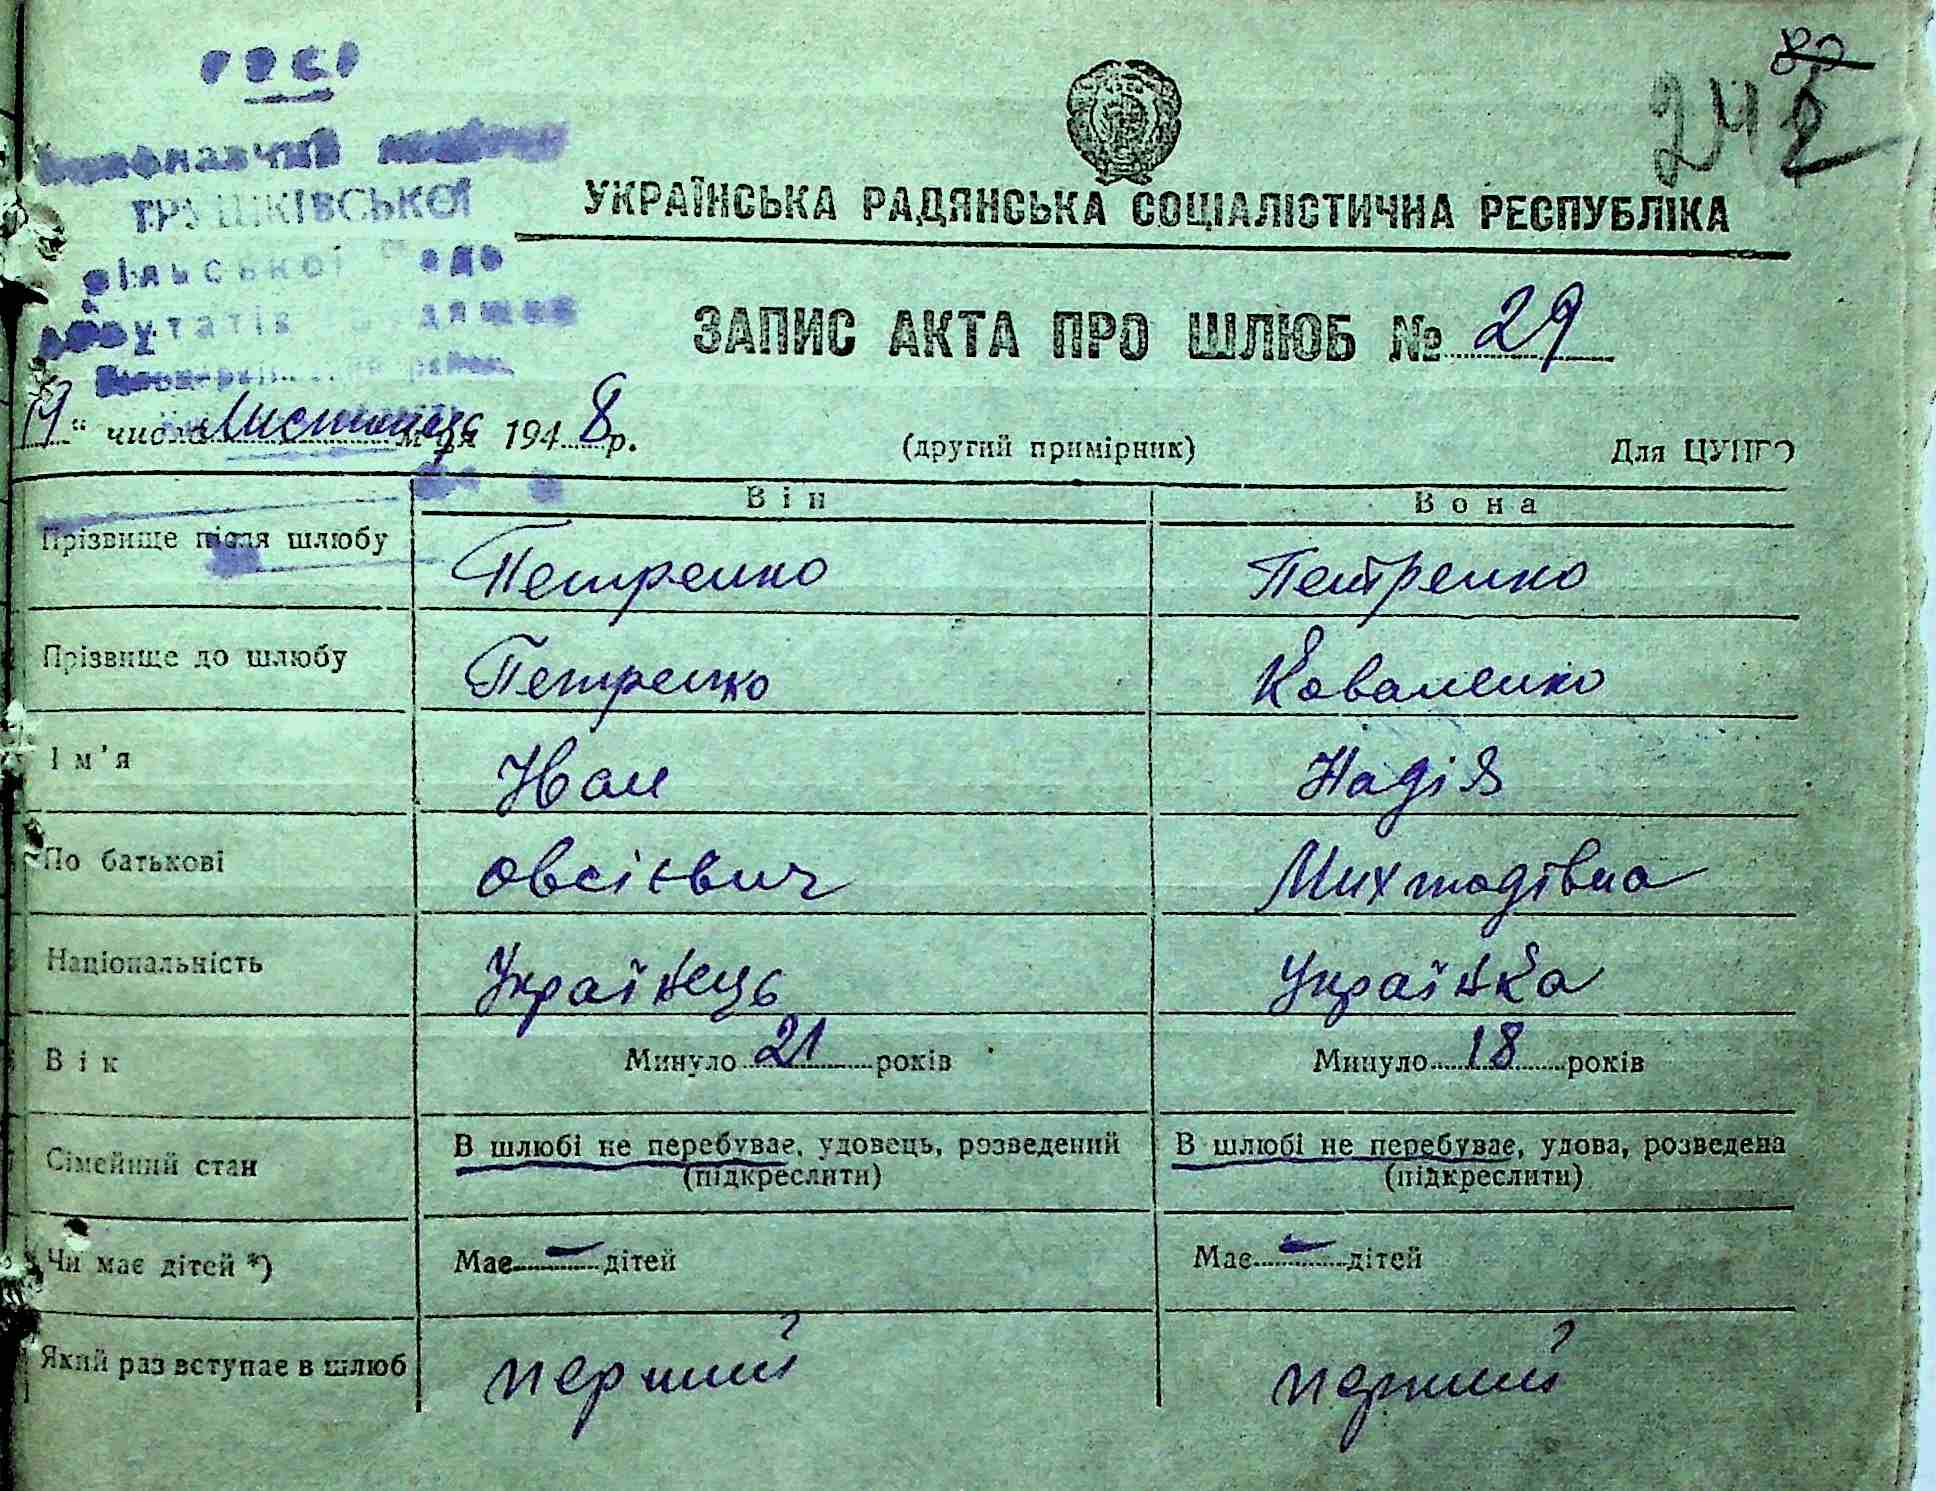 УРСР
Виконавчий комітет
ТРУШКІВСЬКОЇ
сільської Ради
депутатів трудящих
80
242
УКРАЇНСЬКА РАДЯНСЬКА СОЦІАЛІСТИЧНА РЕСПУБЛІКА
ЗАПИС АКТА ПРО ШЛЮБ № 29
19 " числа Листопаць м-ця 1948 р. (другий примірник) Для ЦУПГО
Він Вона
Прізвище після шлюбу Петренко Петренко
Прізвище до шлюбу Петренко Коваленко
Ім'я Іван Надія
По батькові Овсієвич Михтодівна
Національність Українець Українка
Вік Минуло 21 років Минуло 18 років
Сімейний стан В шлюбі не перебуває, удовець, розведений В шлюбі не перебуває, удова, розведена
(підкреслити) (підкреслити)
Чи має дітей *) Має — дітей Має — дітей
Який раз вступає в шлюб перший перший